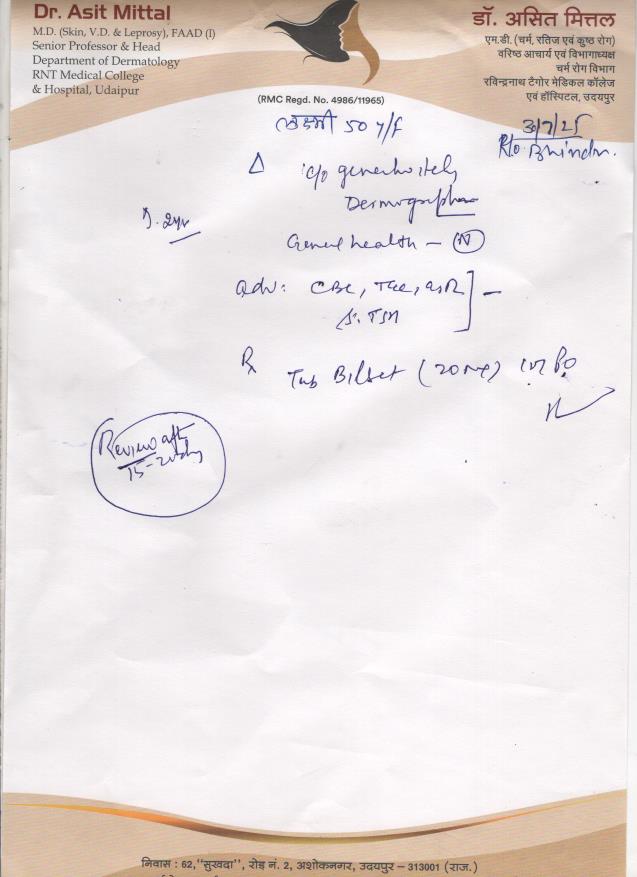 Dr. Asit Mittal
M.D. (Skin, V.D. & Leprosy), FAAD (I)
Senior Professor & Head
Department of Dermatology
RNT Medical College
& Hospital, Udaipur
डॉ. असित मित्तल
एम.डी. (चर्म, रतिज एवं कुष्ठ रोग)
वरिष्ठ आचार्य एवं विभागाध्यक्ष
चर्म रोग विभाग
रविन्द्रनाथ टैगोर मेडिकल कॉलेज
एवं हॉस्पिटल, उदयपुर
(RMC Regd. No. 4986/11965)
लक्ष्मी 50 y/f
3/7/25
R/o Bhinder.
Δ c/o
D. 2yr
General health – (N)
Adv: CBC, TLC,
S. TSH
Rx Tab Bilset (20mg)
Review aft
15-20 day
निवास : 62,"सुखदा", रोड़ नं. 2, अशोकनगर, उदयपुर – 313001 (राज.)